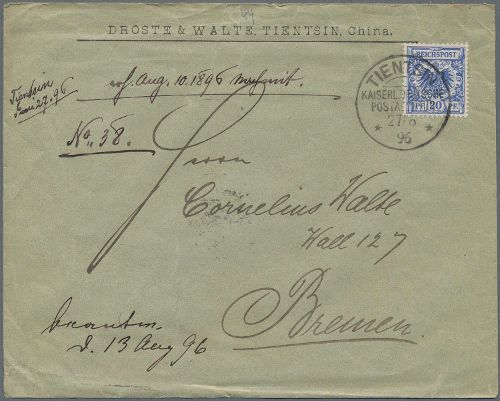 DROSTE & WALTE, TIENTSIN, China.
Tientsin
Juni 27. 96
Aug. 10. 1896
No. 38.
REICHSPOST
PF 20 PF
TIENTSIN
KAISERL. DEUTSCHE
POSTAGENTUR
27/6
96
Herrn
Cornelius Walte
Wall 127
Bremen.
beantw.
d. 13 Aug 96